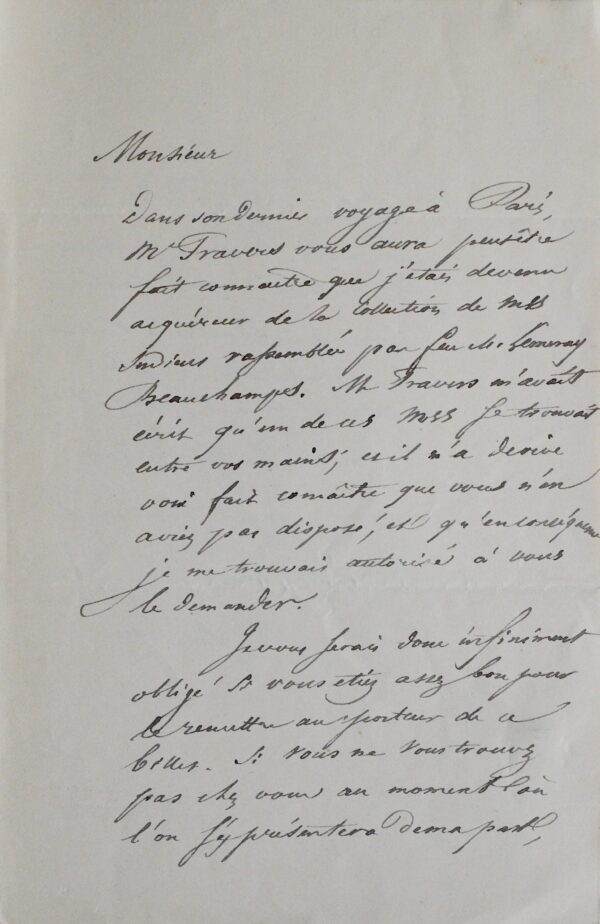 Monsieur
Dans son dernier voyage à Paris,
Mr Travers vous aura peutêtre
fait connaitre que j'étais devenu
acquéreur de la Collection de MSS
Indiens rassemblée par feu M. Lemeray
Beauchamps. M Travers m'avait
écrit qu'un de ces MSS se trouvait
entre vos mains; et il m'a
fait connaître que vous n'en
aviez pas disposé, et qu'en conséquence
je me trouvais autorisé à vous
le demander.
Je vous serais donc infiniment
obligé si vous etiez assez bon pour
le remettre au porteur de ce
billet. Si vous ne vous trouvez
pas chez vous au moment où
l'on s'y présentera de ma part,